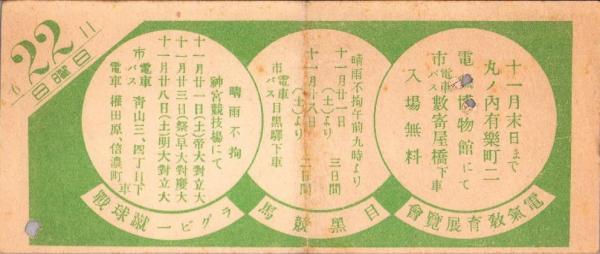 十一月末日まで
丸ノ內有樂町二
電氣博物館にて
市電車バス數寄屋橋下車
入場無料
電氣敎育展覽會
晴雨不拘午前九時より
十一月廿一日(土)より三日間
十一月廿八日(土)より二日間
市電車バス目黑驛下車
目黑競馬
晴雨不拘
神宮競技場にて
十一月廿一日(土)帝大對立大
十一月廿三日(祭)早大對慶大
十一月廿八日(土)明大對立大
市電車バス靑山三、四丁目下車
電車 權田原、信濃町
ラグビー蹴球戰
11
22
日曜日
6